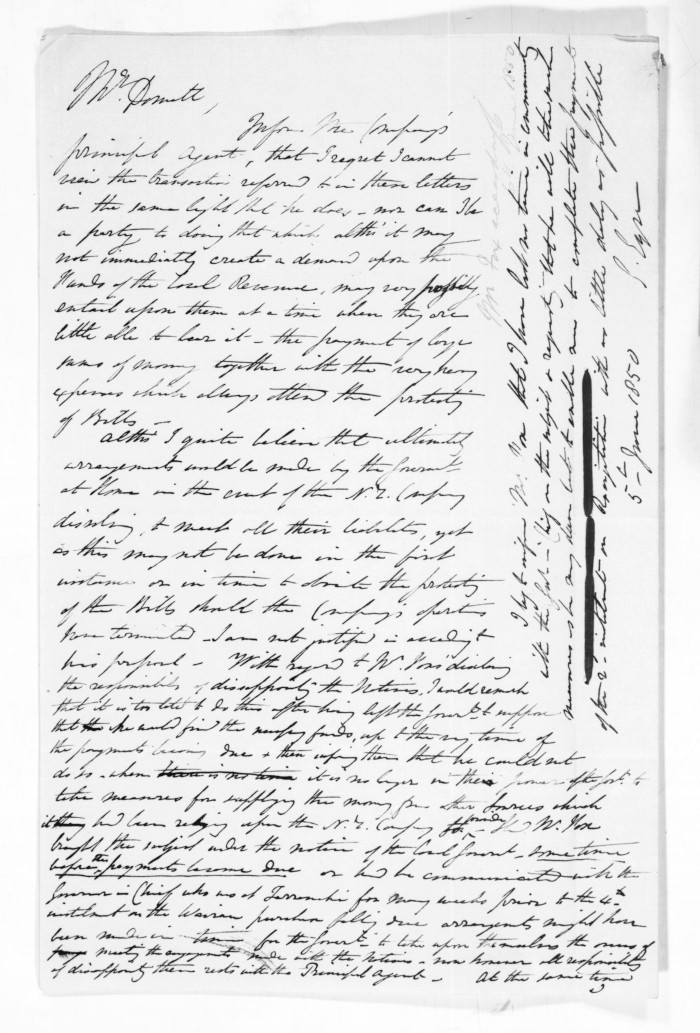 Mr. Domett,
Inform the Company's
principal Agent, that I regret I cannot
view the transaction referred to in these letters
in the same light that he does - nor can I be
a party to doing that which altho' it may
not immediately create a demand upon the
Funds of the Local Revenue, may very possibly
entail upon them at a time when they are
little able to bear it - the payment of large
sums of money together with the very heavy
expenses which always attend the protesting
of Bills -
Altho' I quite believe that ultimately
arrangements would be made by the Governt.
at Home in the event of the N.Z. Company
dissolving, to meet all their liabilities, yet
as this may not be done in the first
instance or in time to obviate the protesting
of the Bills should the Company's operations
have terminated - I am not justified in acceding to
his proposal - With regard to Mr. Fox's disclaiming
the responsibility of disappointing the Natives, I would remark
that it is too late to do this after having left the Governt. to suppose
that he would find the necessary funds, up to the very time of
the payments becoming due & then informing them that he could not
do so - when there is no time it is no longer in their power to
take measures for supplying the money from other sources which
had been relying upon the N.Z. Company to Had Mr. Fox
brought the subject under the notice of the Local Governt. some time
before the payments became due or had he communicated with the
Governor in Chief who was at Taranaki for many weeks prior to the 4th
instalment on the Wairau purchase falling due arrangements might have
been made in time for the Governt. to take upon themselves the onus of
meeting the engagements made with the Natives - now however all responsibility
of disappointing them rests with the Principal Agent - At the same time
I beg to inform Mr. Fox that I have lost no time in communicating
with the Govr. in Chief on the subject & requesting that he will take such
measures as he may deem best to enable me to complete the payments
of the instalments with as little delay as possible
E. Eyre
5th June 1850